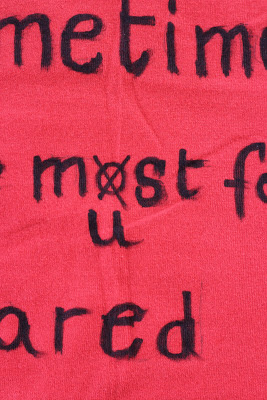 metime
most f
u
ared